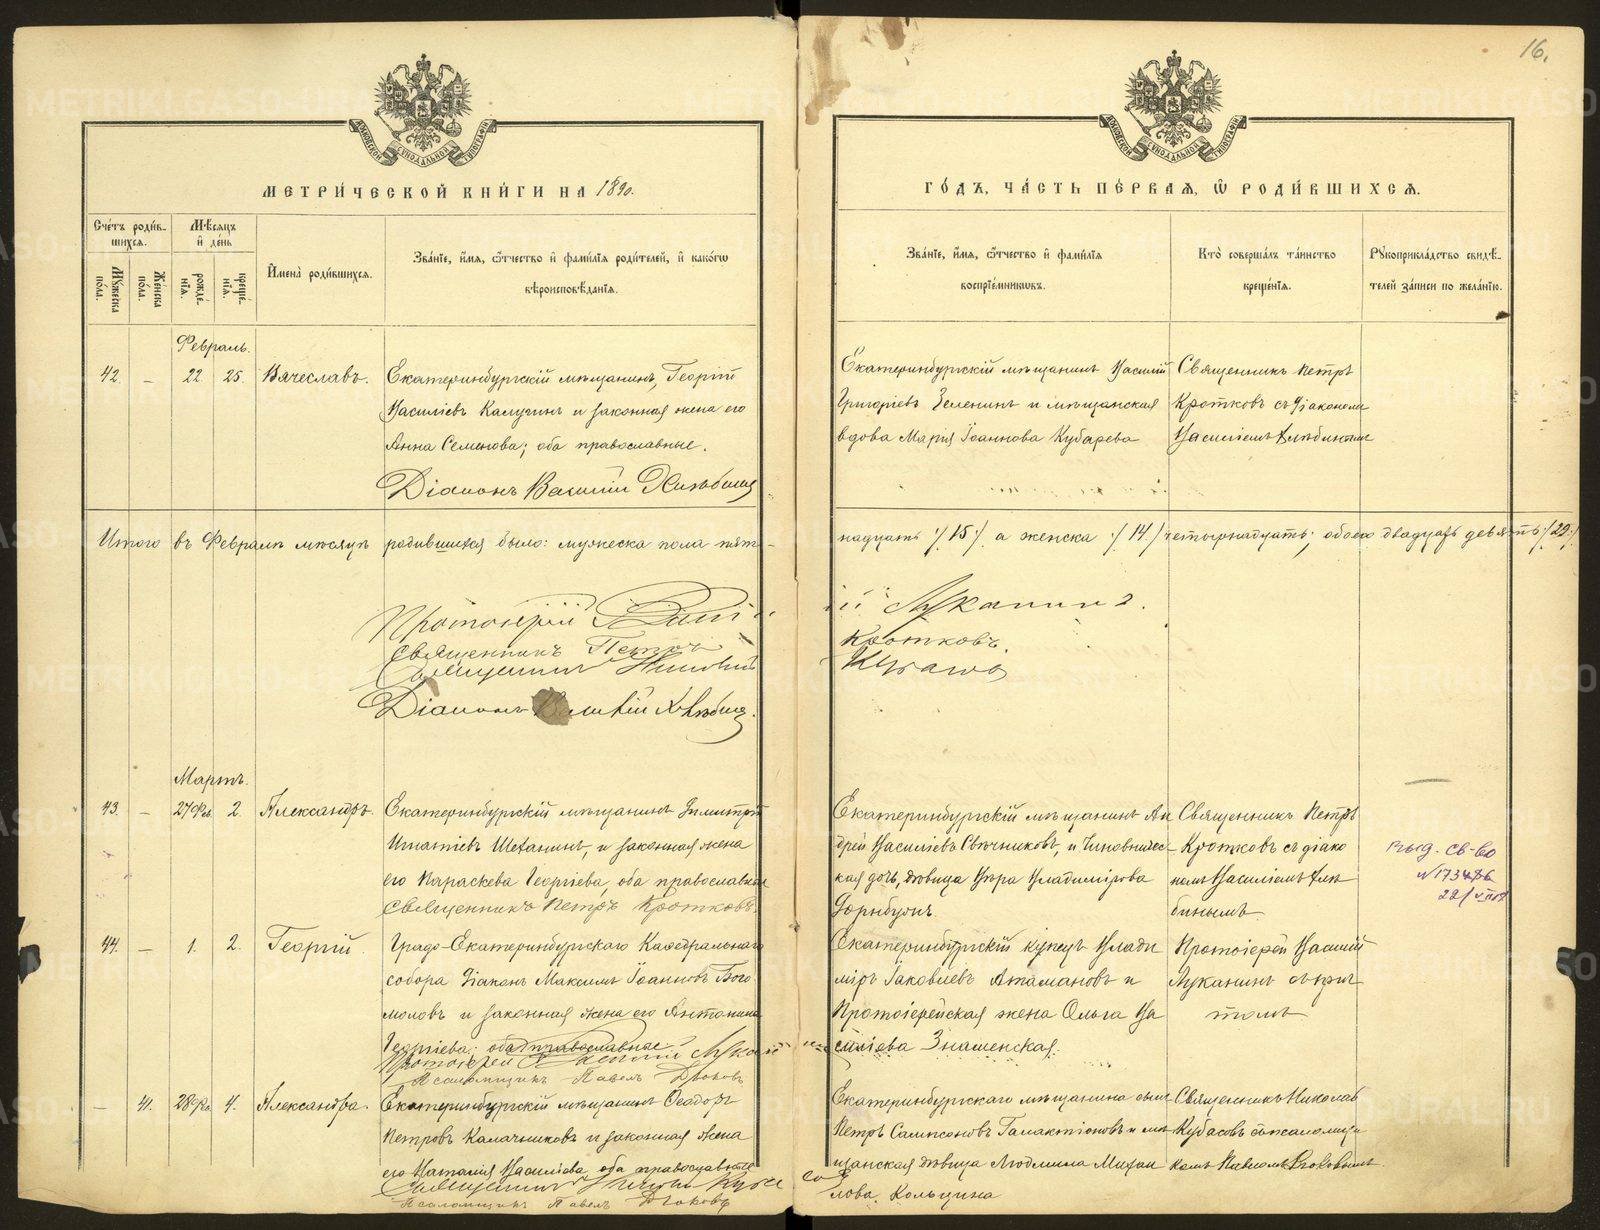 16.
МЕТРИ́ЧЕСКОЙ КНИ́ГИ НА 1890.
ГО́ДЪ, ЧА́СТЬ ПЕ́РВАЯ, Ѡ РОДИ́ВШИХСѦ.
Сче́тъ роди́в-
шихся.
Мѣ́сяцъ
и де́нь
Му́жеска
по́ла.
Же́нска
по́ла.
рожде́-
нїя.
креще́-
нїя.
И҆мена̀ роди́вшихся.
Зва́нїе, и҆́мя, ѻ҆́тчество и҆ фами́лїя роди́телей, и҆ како́гѡ
вѣроисповѣ́данїя.
Зва́нїе, и҆́мя, ѻ҆́тчество и҆ фами́лїя
воспрїе́мникѡвъ.
Кто̀ соверша́лъ та́инство
креще́нїя.
Рукоприкла́дство свидѣ́-
телей за́писи по жела́нїю.
Февраль.
42. – 22. 25. Вячеславъ. Екатеринбургскій мѣщанинъ, Георгій
Василіевъ Калугинъ и законная жена его
Анна Семенова; оба православные.
Діаконъ Василій Хлѣбинъ
Екатеринбургскій мѣщанинъ Василій
Григоріевъ Зеленинъ и мѣщанская
вдова Марія Іоаннова Кубарева
Священникъ Петръ
Кротковъ съ діакономъ
Василіемъ Хлѣбинымъ
Итого въ Февралѣ мѣсяцѣ родившихся было: мужеска пола пят-
надцать /15/ а женска /14/ четырнадцать; обоего двадцать девять /29/
Протоіерей Васил
ій Луканинъ.
Священникъ Петръ
Кротковъ.
Священникъ Николай
Діаконъ Василій Хлѣбинъ.
Мартъ.
43. – 27 Фев. 2. Александръ. Екатеринбургскій мѣщанинъ Димитрій
Игнатіевъ Шеханинъ, и законная жена
его Параскева Георгіева, оба православные
Священникъ Петръ Кротковъ.
Екатеринбургскій мѣщанинъ Ан
дрей Василіевъ Свѣчниковъ, и Чиновничес-
кая дочь, дѣвица Вѣра Владимірова
Священникъ Петръ
Кротковъ съ діако
номъ Василіемъ Хлѣ
бинымъ.
выд. св-во
44. – 1. 2. Георгій. Градо-Екатеринбургскаго Каѳедральнаго
собора Діаконъ Максимъ Іоанновъ Бого
моловъ и законная жена его Антонина
Георгіева; оба православные
Протоіерей Василій Лукан
Псаломщикъ Павелъ Дьяковъ
Екатеринбургскій купецъ Влади
міръ Іаковлевъ Атамановъ и
Протоіерейская жена Ольга Ва
силіева Знаменская.
Протоіерей Василій
Луканинъ съ прич
томъ
– 41. 28 Фев. 4. Александра. Екатеринбургскій мѣщанинъ Ѳеодоръ
Петровъ Калачниковъ и законная жена
его Наталія Василіева, оба православные
Священникъ Николай
Псаломщикъ Павелъ Дьяковъ
Екатеринбургскаго мѣщанина сынъ
Петръ Сампсоновъ Галактіоновъ и мѣ
щанская дѣвица Людмила Михаи
лова Кольцина
Священникъ Николай